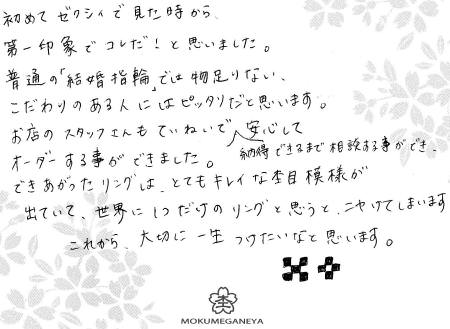 初めてゼクシィで見た時から、
第一印象でコレだ!と思いました。
普通の「結婚指輪」では物足りない、
こだわりのある人にはピッタリだと思います。
お店のスタッフさんもていねいで、安心して
納得できるまで相談する事ができ、
オーダーする事ができました。
できあがったリングは、とてもキレイな杢目模様が
出ていて、世界に1つだけのリングと思うと、ニヤけてしまいます
これから、大切に一生つけたいなと思います。
MOKUMEGANEYA